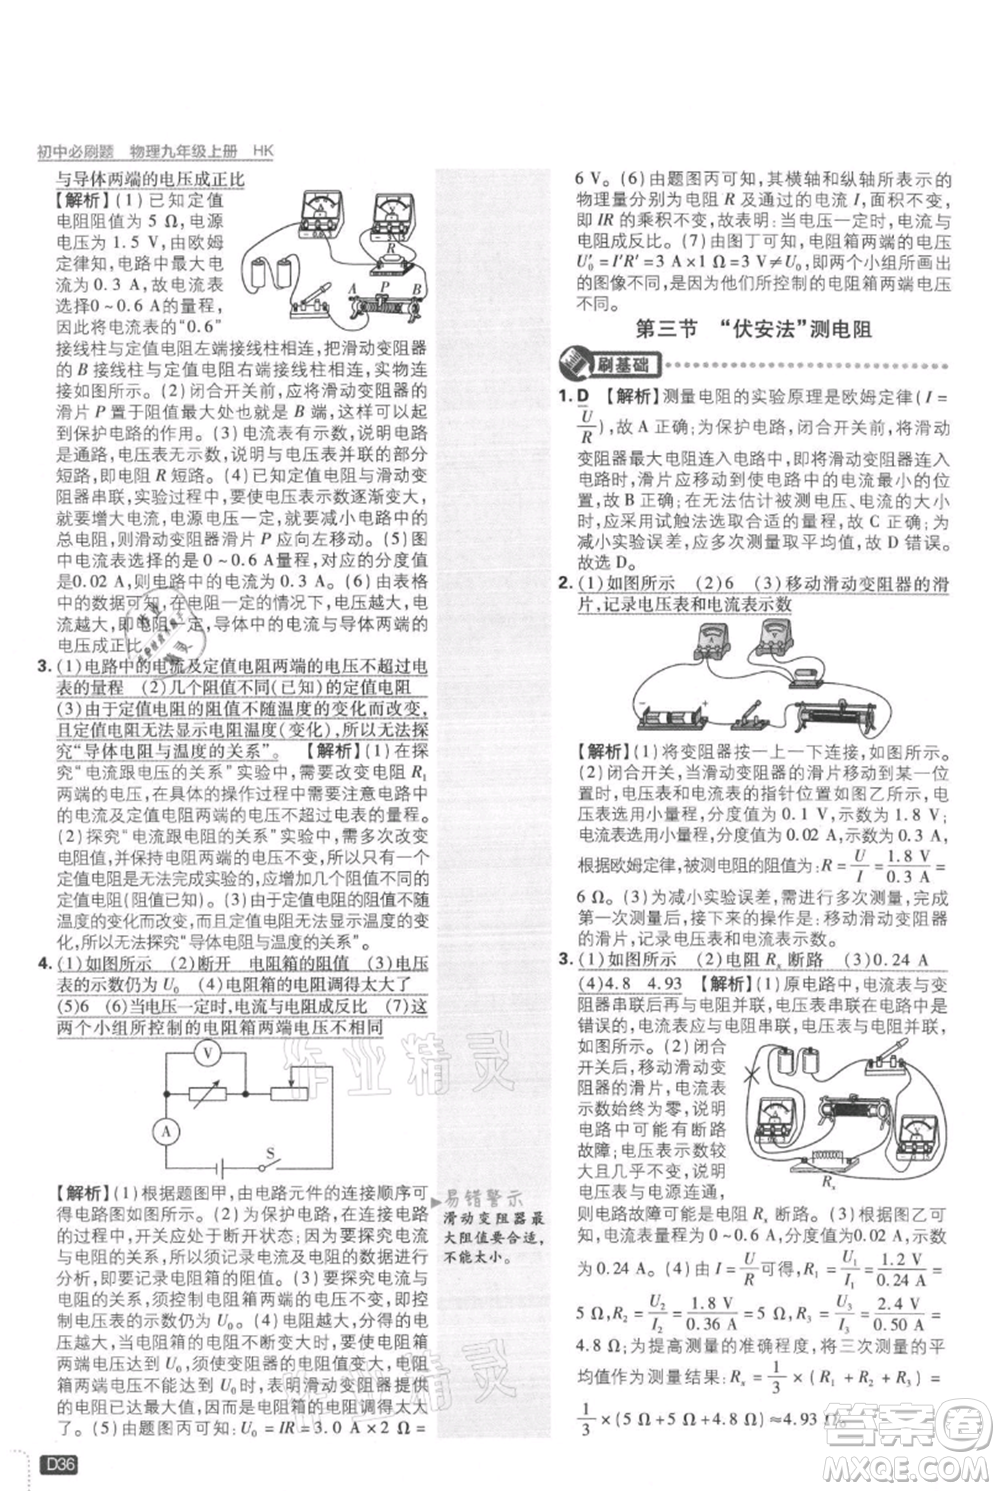 初中必刷题 物理九年级上册 HK
与导体两端的电压成正比
【解析】(1)已知定值
电阻阻值为 5 Ω,电源
电压为 1.5 V,由欧姆
定律知,电路中最大电
流为 0.3 A,故电流表
选择 0~0.6 A 的量程,
因此将电流表的“0.6”
接线柱与定值电阻左端接线柱相连,将滑动变阻器
的 B 接线柱与定值电阻右端接线柱相连,实物连
接如图所示。(2)闭合开关前,应将滑动变阻器的
滑片 P 置于阻值最大处,也就是 B 端,这样可以
起到保护电路的作用。(3)电流表有示数,说明电路
是通路,电压表无示数,说明与电压表并联的部分
短路,则电阻 R 短路。(4)已知定值电阻与滑动变
阻器串联,实验过程中,需使电压表示数逐渐变大,
就需要增大电流,电源电压一定,就要减小电路中的
总电阻,则滑动变阻器滑片 P 应向左移动。(5)图
中电流表选择 0~0.6 A 的量程,对应的分度值
是 0.02 A,则电路中的电流为 0.3 A。(6)根据表
中数据可知,在电阻一定的情况下,电压越大,电流
越大,即电阻一定时,导体中的电流与导体两端的电
压成正比。
3. (1)电路中的电流及定值电阻两端的电压不超过电
表的量程 (2)几个阻值不同(已知)的定值电阻
(3)由于定值电阻的阻值不随温度的变化而改变,
且定值电阻无法显示电阻温度(变化),所以无法探
究“导体电阻与温度的关系”。 【解析】(1)在探
究“电流跟电压的关系”实验中,需要改变电阻 R₁
两端的电压,在具体的操作过程中需要注意电路中
的电流及定值电阻两端的电压不超过电表的量程。
(2)探究“电流跟电阻的关系”实验中,需多次改变
电阻值,并且确保电阻两端的电压不变,只有一个
定值电阻是无法完成实验的,因此还需要几个不同
定值电阻(阻值已知)。(3)由于定值电阻的阻值不随
温度的变化而改变,且定值电阻无法显示电阻的温度
变化,所以无法探究“导体电阻与温度的关系”。
4. (1)如图所示 (2)断开 电阻箱的阻值 (3)电压
表的示数仍为 U₀ (4)电阻箱的阻值调得太大了
(5)6 (6)当电压一定时,电流与电阻成反比 (7)这
两个小组所控制的电阻箱两端电压不相同
V
A
S
【解析】(1)根据题图甲,由电路元件的连接顺序可
得电路图如图所示。(2)为保护电路,在连接电路
时,开关应处于断开状态;因为要探究电流与电阻
的关系,所以记录电流表的示数的同时,还需要记
录电阻箱的阻值。(3)要探究电流与电阻的
关系,须控制电阻箱两端的电压不变,所以每次改
变电阻箱的阻值后,都要移动滑片使电压表的示数
为 U₀。(4)电阻箱与滑动变阻器串联,由串联分压
规律,当电阻箱的阻值不断变大时,其两端分得的电
压变大,为使电压表示数为 U₀,须使滑动变阻器分
担的电压变大,则须使变阻器的阻值变大,若无论
怎样移动变阻器的滑片,都无法使电压表的示数达
到 U₀,说明电阻箱两端分得的电压太大,电阻箱分
得的电压太大的原因是电阻箱的阻值调得太大
了。(5)由题图丙可知:U₀ = IR = 3.0 A×2 Ω =
易错警示
滑动变阻器最
大阻值要合适,
不能太小。
6 V。(6)由题图丙可知,其横轴和纵轴所表示的
物理量分别为电阻 R 及通过的电流 I,面积不变,
即 IR 的乘积不变,故表明:当电压一定时,电流与
电阻成反比。(7)由图丁可知,电阻箱两端的电压
U₀′=I′R′=3 A×1 Ω=3 V≠U₀,故两个小组所画出
的图像不同,是因为他们所控制的电阻箱两端电压
不同。
第三节 “伏安法”测电阻
刷基础
1. D 【解析】测量电阻的实验原理是欧姆定律(I =
U/R),故 A 正确;为保护电路,闭合开关前,将滑动
变阻器最大电阻连入电路中,此时电路中的电流最
小,滑片应移到连入阻值最大处,即接线柱的远端
处,故 B 正确;在无法估计被测电压、电流的大小
时,应采用试触法选择电表的量程,故 C 正确;为
减小实验误差,应多次测量取平均值,故 D 错误。
故选 D。
2. (1)如图所示 (2)6 (3)移动滑动变阻器的滑
片,记录电压表和电流表示数
【解析】(1)将变阻器一上一下连接,如图所示。
(2)闭合开关,当滑动变阻器的滑片移动到某一位
置时,电压表和电流表的指针位置如图乙所示,电
压表选用小量程,分度值为 0.1 V,示数为 1.8 V;
电流表选用小量程,分度值为 0.02 A,示数为 0.3 A,
根据欧姆定律,被测电阻的阻值为:R = U/I = 1.8 V/0.3 A =
6 Ω。(3)为减小实验误差,需进行多次测量,完成
第一次测量后,接下来的操作是:移动滑动变阻器
的滑片,记录电压表和电流表示数。
3. (1)如图所示 (2)电阻 Rₓ 断路 (3)0.24 A
(4)4.8 4.93 【解析】(1)原电路中,电流表与变
阻器串联后再与电阻并联,电压表串联在电路中是
错误的,电流表应与电阻串联,电压表与电阻并联,
如图所示。(2)闭合
开关后,移动滑动变
阻器的滑片,电流表
示数始终为零,说明
电路中可能有断路
故障;电压表示数较大
且几乎不变,说明
电压表与电源连通,
则电路故障可能是电阻 Rₓ 断路。(3)根据图乙可
知,电流表的量程为 0~0.6 A,分度值为 0.02 A,示数
为 0.24 A。(4)由 I = U/R 可得,R₁ = U₁/I₁ = 1.2 V/0.24 A =
5 Ω,R₂ = U₂/I₂ = 1.8 V/0.36 A = 5 Ω,R₃ = U₃/I₃ = 2.4 V/0.50 A =
4.8 Ω;为提高测量的准确程度,将三次测量的平
均值作为测量结果:Rₓ = 1/3 × (R₁ + R₂ + R₃) =
1/3 ×(5 Ω+5 Ω+4.8 Ω)≈4.93 Ω。
D36
作业精灵
答案圈
MXQE.COM